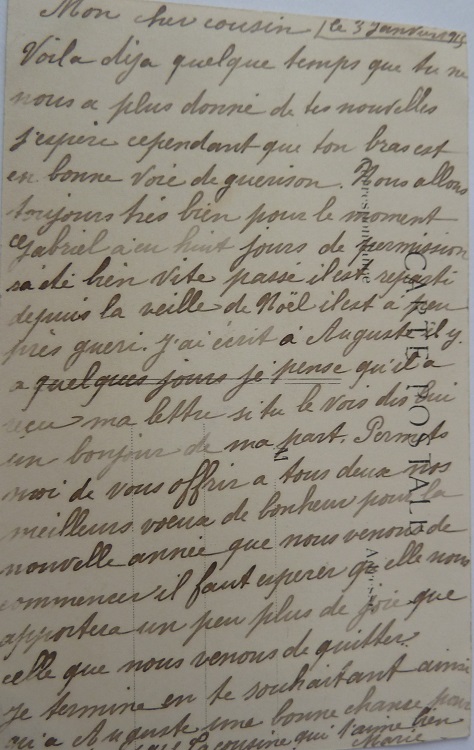 Mon cher cousin le 3 Janvier 1915
Voila dija quelque temps que tu ne
nous a plus donné de tes nouvelles
j'espere cependant que ton bras est
en bonne voie de guerison. Nous allons
toujours trés bien pour le moment
Gabriel a eu huit jours de permission
sa été bien vite passé il est reparti
depuis la veille de Noël il est a peu
près gueri. J'ai écrit a Auguste il y
a quelques jours je pense qu'il a
reçu ma lettre si tu le vois dis lui
un bonjour de ma part. Permets
moi de vous offrir a tous deux nos
meilleurs voeux de bonheur pour la
nouvelle année que nous venons de
commencer il faut esperer qu'elle nous
apportera un peu plus de joie que
celle que nous venons de quitter.
Je termine en te souhaitant ainsi
qu'a Auguste une bonne chance pour
cousine qui t'aime bien
Marie
CARTE POSTALE